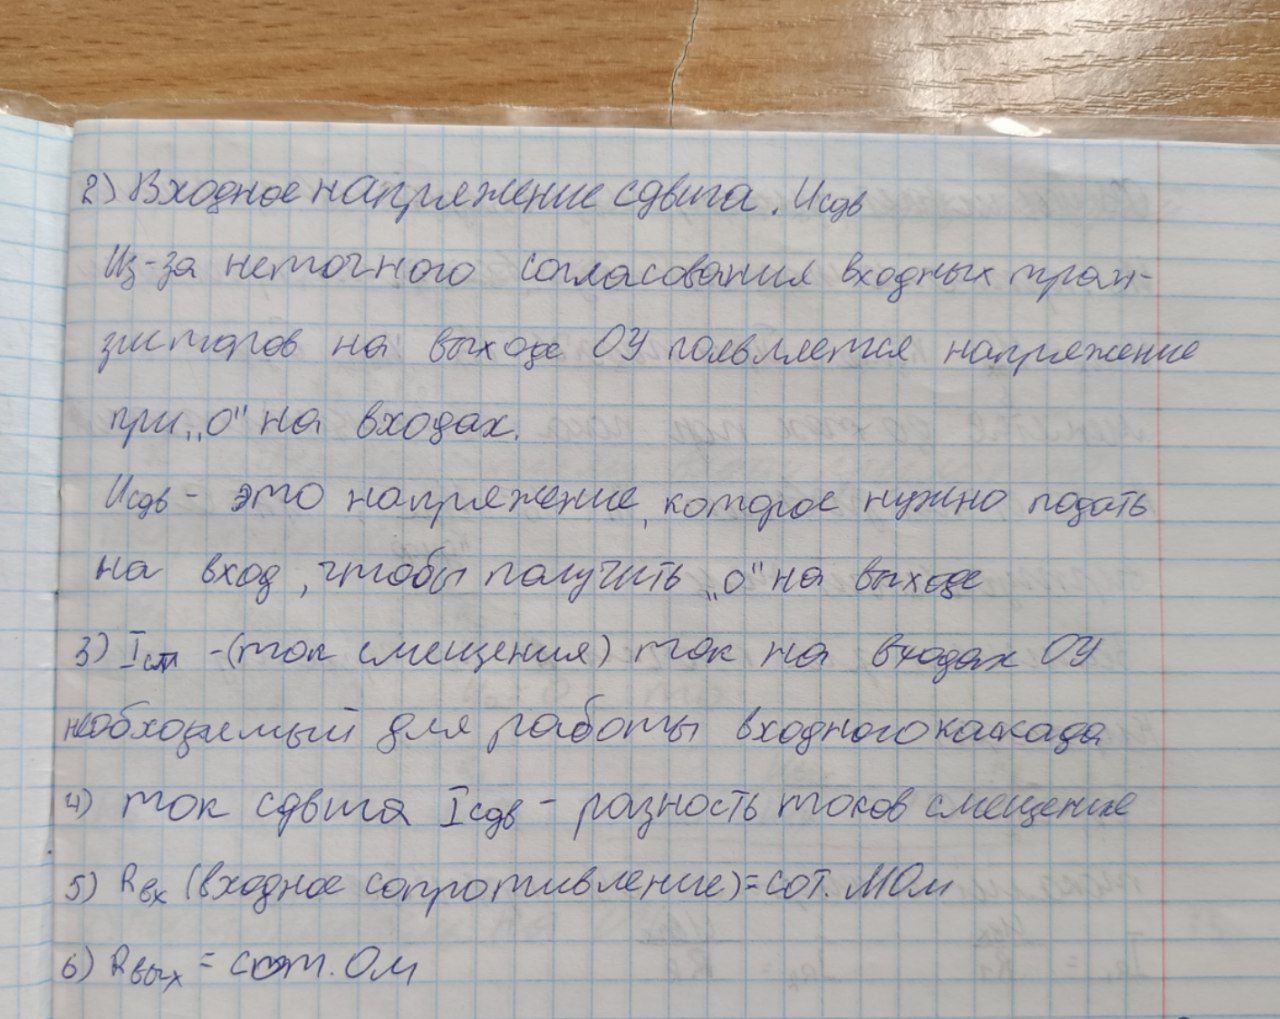 2) Входное напряжение сдвига. Uсдв
Из-за неточного согласования входных тран-
зисторов на выходе ОУ появляется напряжение
при „0" на входах.
Uсдв - это напряжение, которое нужно подать
на вход, чтобы получить „0" на выходе
3) Iсм -(ток смещения) ток на входах ОУ
необходимый для работы входного каскада
4) ток сдвига Iсдв - разность токов смещение
5) Rвх (входное сопротивление)=сот. МОм
6) Rвых = сот. Ом